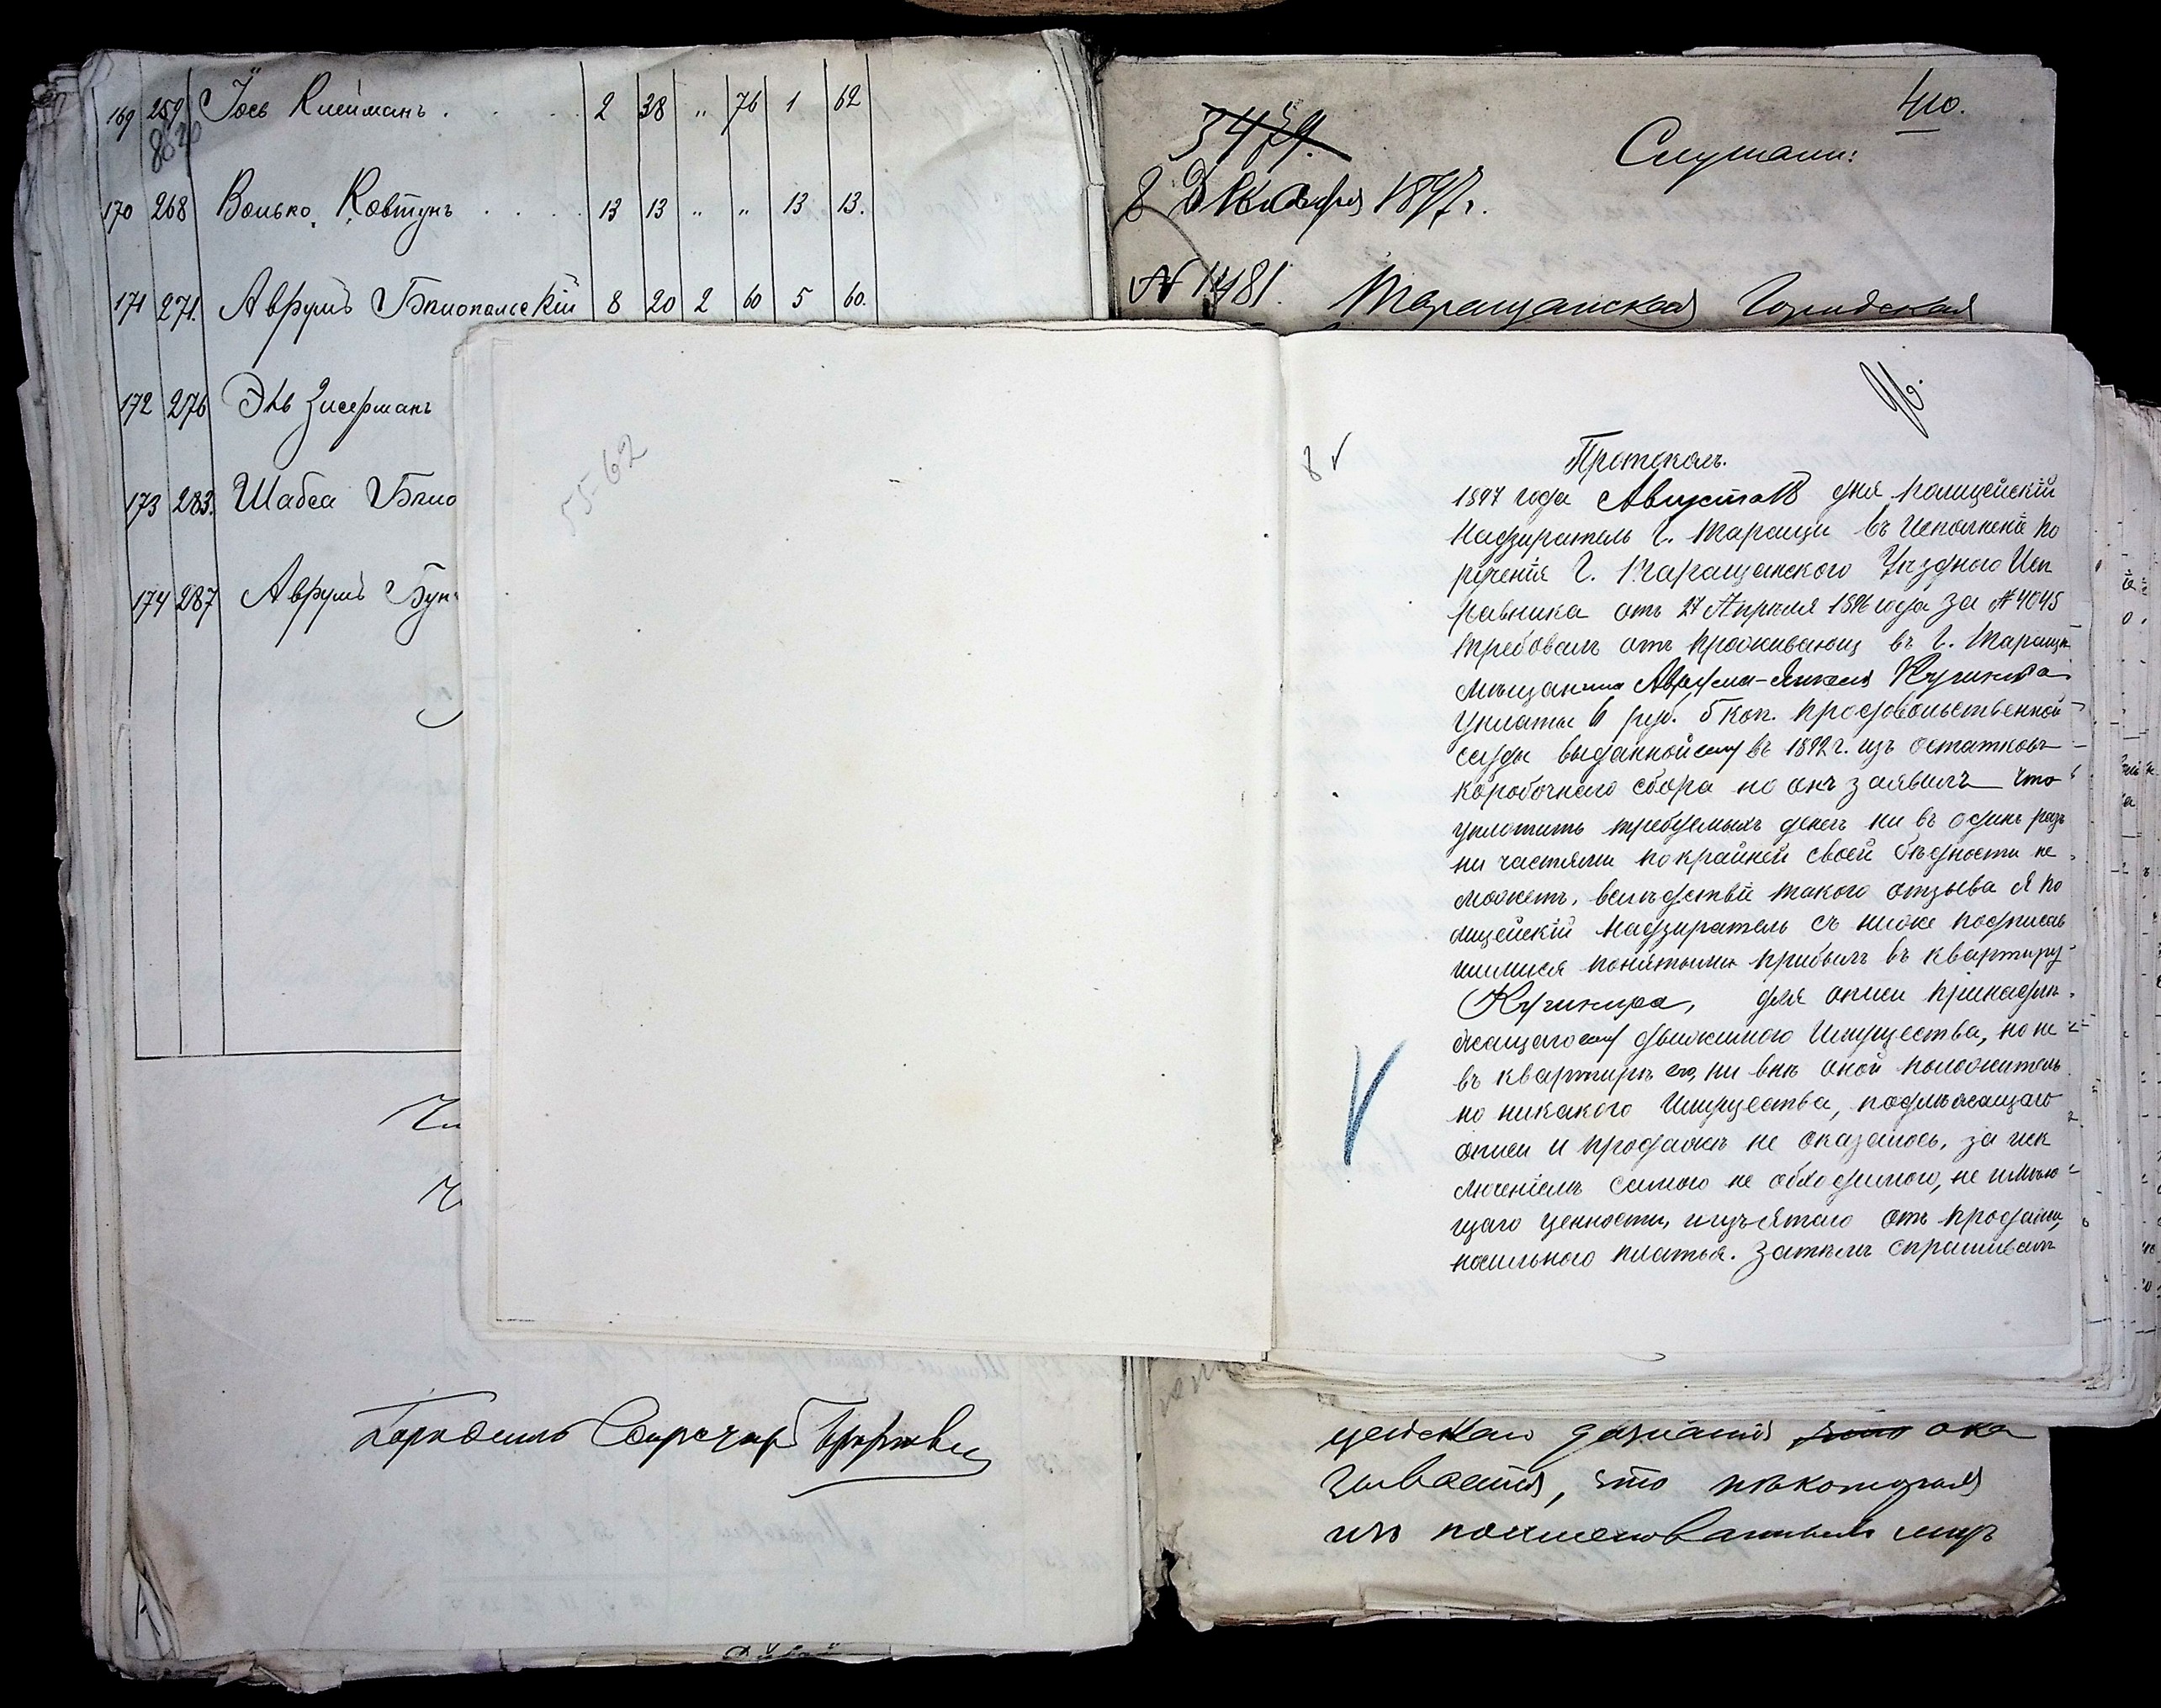 169 259 Іось Клейманъ . . . . 2 38 „ 76 1 62
170 268 Волько Ковтунъ . . . . 13 13 „ „ 13 13.
171 271. Аврумъ Бялопольскій 8 20 2 60 5 60.
172 276 Эль Зисерманъ
173 283. Шабса Бяло
174 287 Аврумъ Бун
410.
Слушали:
8 Декабря 1897 г.
Таращанская Городская
55-62
8
Протоколъ.
1897 года Августа 18 дня полицейскій
Надзиратель г. Таращи въ исполненіе по
рученія Г. Таращанского Уѣзднаго Исп
равника отъ 27 Апрѣля 1896 года за № 4045
требовалъ отъ проживающ въ г. Таращѣ
мѣщанина Аврума-Янкеля
уплаты 6 руб. 5 коп. продовольственной
ссуды выданной ему въ 1892 г. изъ остатковъ
коробочнаго сбора но онъ заявилъ что
уплатить требуемыхъ денегъ ни въ одинъ разъ
ни частями по крайней своей бѣдности не
можетъ, вслѣдствіе такого отзыва я по
лицейскій Надзиратель съ ниже подписав
шимися понятыми прибылъ въ квартиру
для описи принадле
жащаго ему движимого имущества, но ни
въ квартирѣ его, ни внѣ оной положитель
но никакого имущества, подлежащаго
описи и продажѣ не оказалось, за иск
люченіемъ самого не обходимого, не имѣю
щаго ценности, изъятаго отъ продажи,
носильного платья. Затѣмъ спрашивалъ
цейскаго дознанія ока
зывается, что нѣкоторыя
изъ поименованныхъ лицъ